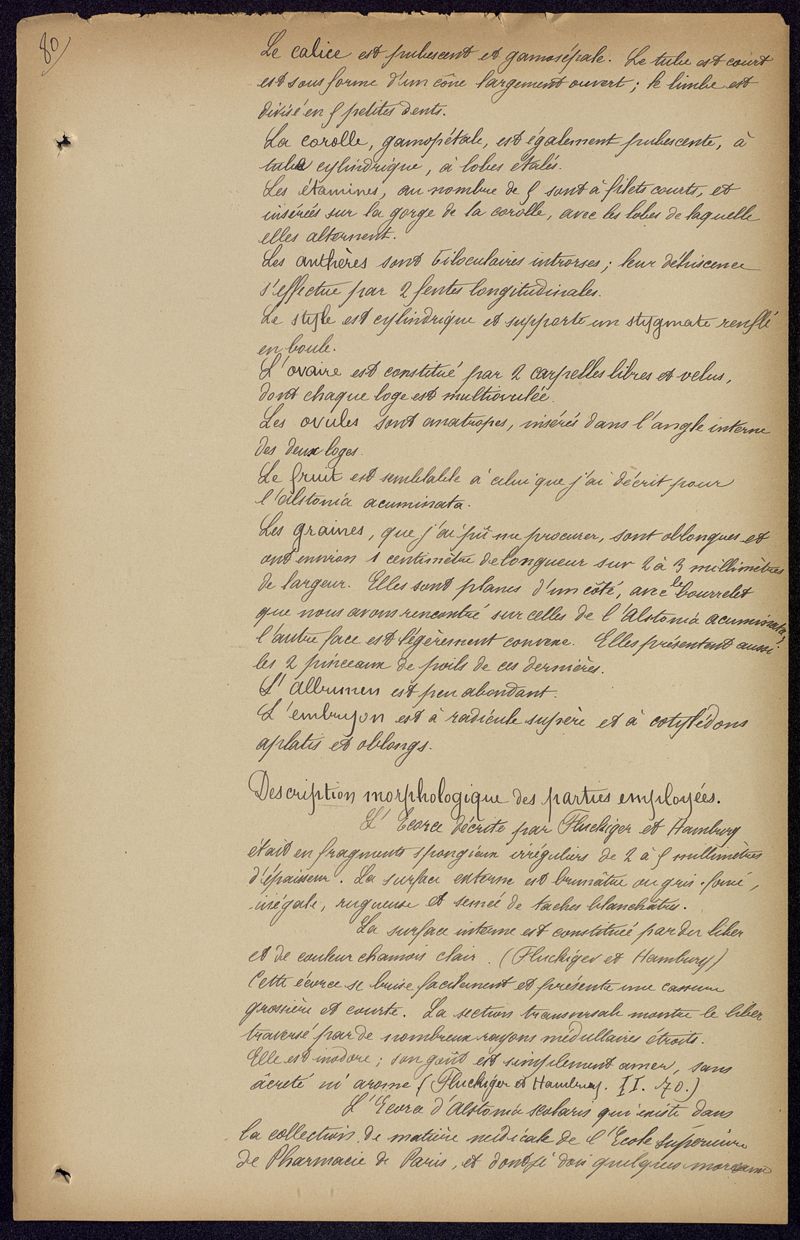 80
Le calice est pubescent et gamosépale. Le tube est court
est sous forme d'un cône largement ouvert ; le limbe est
divisé en 5 petites dents.
La corolle, gamopétale, est également pubescente, à
tube cylindrique, à lobes étalés.
Les étamines, au nombre de 5 sont à filets courts, et
insérées sur la gorge de la corolle, avec les lobes de laquelle
elles alternent.
Les anthères sont biloculaires introrses ; leur déhiscence
s'effectue par 2 fentes longitudinales.
Le style est cylindrique et supporte un stygmate renflé
en boule.
L'ovaire est constitué par 2 carpelles libres et velus,
dont chaque loge est multiovulée.
Les ovules sont anatropes, insérés dans l'angle interne
des deux loges.
Le fruit est semblable à celui que j'ai décrit pour
l'alstonia acuminata.
Les graines, que j'ai pû me procurer, sont oblongues et
ont environ 1 centimètre de longueur sur 2 à 3 millimètres
de largeur. Elles sont planes d'un côté, avec le bourrelet
que nous avons rencontré sur celles de l'Alstonia acuminata,
l'autre face est légèrement convexe. Elles présentent aussi
les 2 pinceaux de poils de ces dernières.
L'albumen est peu abondant.
L'embryon est à radicule supère et à cotylédons
aplatis et oblongs.
Description morphologique des parties employées.
L'Ecorce décrite par Fluckiger et Hambury
était en fragments spongieux irréguliers de 2 à 5 millimètres
d'épaisseur. La surface externe est brunâtre ou gris-foncé,
inégale, rugueuse et semée de taches blanchâtres.
La surface interne est constitué par du liber
et de couleur chamois clair. (Fluckiger et Hambury)
Cette écorce se brise facilement et présente une cassure
grossière et courte. La section transversale montre le liber
traversé par de nombreux rayons médullaires étroits.
Elle est inodore ; son goût est simplement amer, sans
âcreté ni arome (Fluckiger et Hambury. II. 70.)
L'Ecorce d'Alstonia scolaris qui existe dans
la collection de matière médicale de l'Ecole Supérieure
de Pharmacie de Paris, et dont je dois quelques morceaux